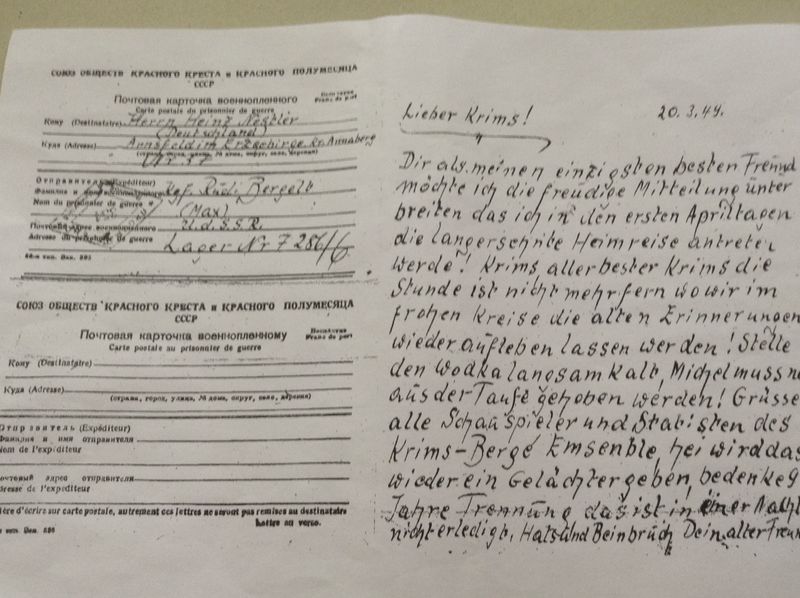 СОЮЗ ОБЩЕСТВ КРАСНОГО КРЕСТА и КРАСНОГО ПОЛУМЕСЯЦА
СССР
Почтовая карточка военнопленного
Carte postale du prisonnier de guerre
Franc de port
Кому (Destinataire) Herrn Heinz Nestler
(Deutschland)
Куда (Adresse) Annsfeld im Erzgebirge Kr. Annaberg
Nr. 37
Отправитель (Expéditeur)
Kgf. Rudi Bergelt
Nom du prisonnier de guerre (Max)
Почтовый адрес военнопленного U.d.S.S.R.
Adresse du prisonnier de guerre Lager Nr 7 286/6
СОЮЗ ОБЩЕСТВ КРАСНОГО КРЕСТА и КРАСНОГО ПОЛУМЕСЯЦА
СССР
Почтовая карточка военнопленному
Carte postale au prisonnier de guerre
Бесплатно
Franc de port
Кому (Destinataire)
Куда (Adresse)
(страна, город, улица, № дома, округ, село, деревня)
Отправитель (Expéditeur)
Фамилия и имя отправителя
Nom de l'expéditeur
Почтовый адрес отправителя
Adresse de l'expéditeur
ière d'écrire sur carte postale, autrement ces lettres ne seront pas remises au destinataire
Lettre au verso.
Lieber Krims!
20.3.49.
Dir als meinen einzigsten besten Freund
möchte ich die freudige Mitteilung unter
breiten das ich in den ersten Apriltagen
die langersehnte Heimreise antreten
werde! Krims, allerbester Krims die
Stunde ist nicht mehr fern wo wir im
frohen Kreise die alten Erinnerungen
wieder aufleben lassen werden! Stelle
den Wodka langsam kalt, Michel muss n
aus der Taufe gehoben werden! Grüsse
alle Schauspieler und Statisten des
Krims-Berge Emsenble, hei wird das
wieder ein Gelächter geben, bedenke 9
Jahre Trennung das ist in einer Nacht
nicht erledigt, Hals und Beinbruch Dein alter Freun